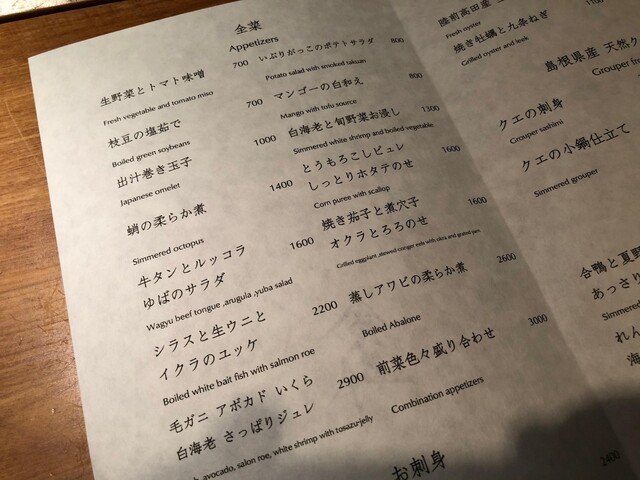 全菜
Appetizers
生野菜とトマト味噌 700
Fresh vegetable and tomato miso
枝豆の塩茹で 700
Boiled green soybeans
出汁巻き玉子 1000
Japanese omelet
蛸の柔らか煮 1400
Simmered octopus
牛タンとルッコラ 1600
ゆばのサラダ
Wagyu beef tongue ,arugula ,yuba salad
シラスと生ウニと 2200
イクラのユッケ
Boiled white bait fish with salmon roe
毛ガニ アボカド いくら 2900
白海老 さっぱりジュレ
avocado, salon roe, white shrimp with tosazu-jelly
いぶりがっこのポテトサラダ 800
Potato salad with smoked takuan
マンゴーの白和え 800
Mango with tofu source
白海老と旬野菜お浸し 1300
Simmered white shrimp and boiled vegetable
とうもろこしピュレ 1600
しっとりホタテのせ
Corn puree with scallop
焼き茄子と煮穴子 1600
オクラとろろのせ
Grilled eggplant ,stewed conger eels with okra and grated yam
蒸しアワビの柔らか煮 2600
Boiled Abalone
前菜色々盛り合わせ 3000
Combination appetizers
お刺身
2400
陸前高田産
Fresh oyster
焼き牡蠣と九条ねぎ 1100
Grilled oyster and leek
島根県産 天然ク
Grouper fro
クエの刺身
Grouper sashimi
クエの小鍋仕立て
Simmered grouper
合鴨と夏野
あっさり
Simmered
れん
海